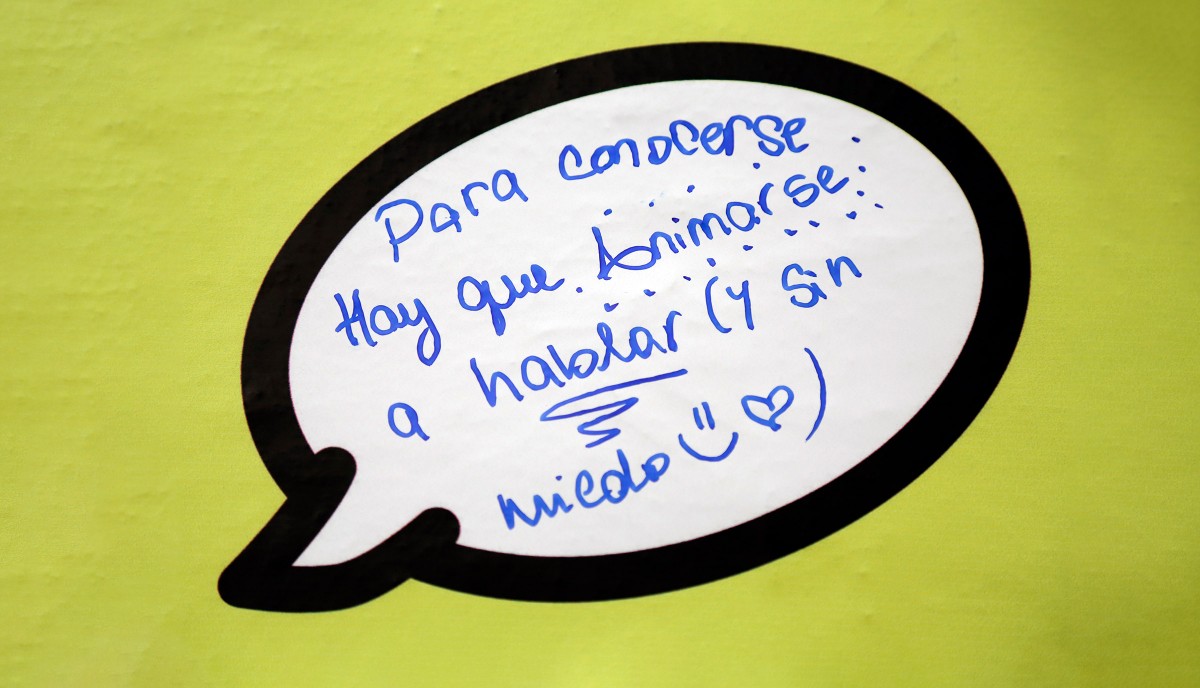 Para conocerse
Hay que Animarse
a hablar (y sin
miedo =) ♡)